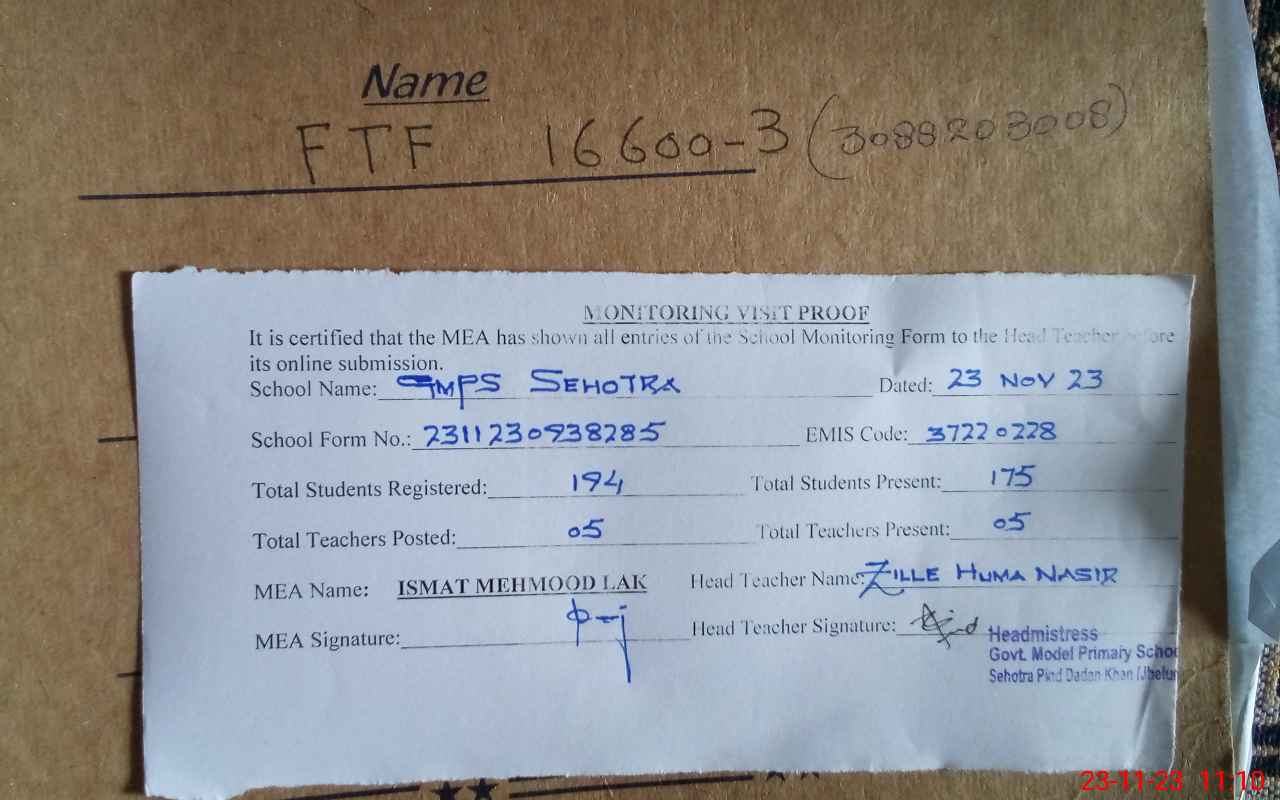 Name
FTF 16600-3 (3088203008)
MONITORING VISIT PROOF
It is certified that the MEA has shown all entries of the School Monitoring Form to the Head Teacher before
its online submission.
School Name: GMPS SEHOTRA Dated: 23 NOV 23
School Form No.: 2311230938285 EMIS Code: 37220228
Total Students Registered: 194 Total Students Present: 175
Total Teachers Posted: 05 Total Teachers Present: 05
MEA Name: ISMAT MEHMOOD LAK Head Teacher Name: ZILLE HUMA NASIR
MEA Signature: Head Teacher Signature:
Headmistress
Govt. Model Primary School
Sehotra Pind Dadan Khan (Jhelum
23-11-23 11:10